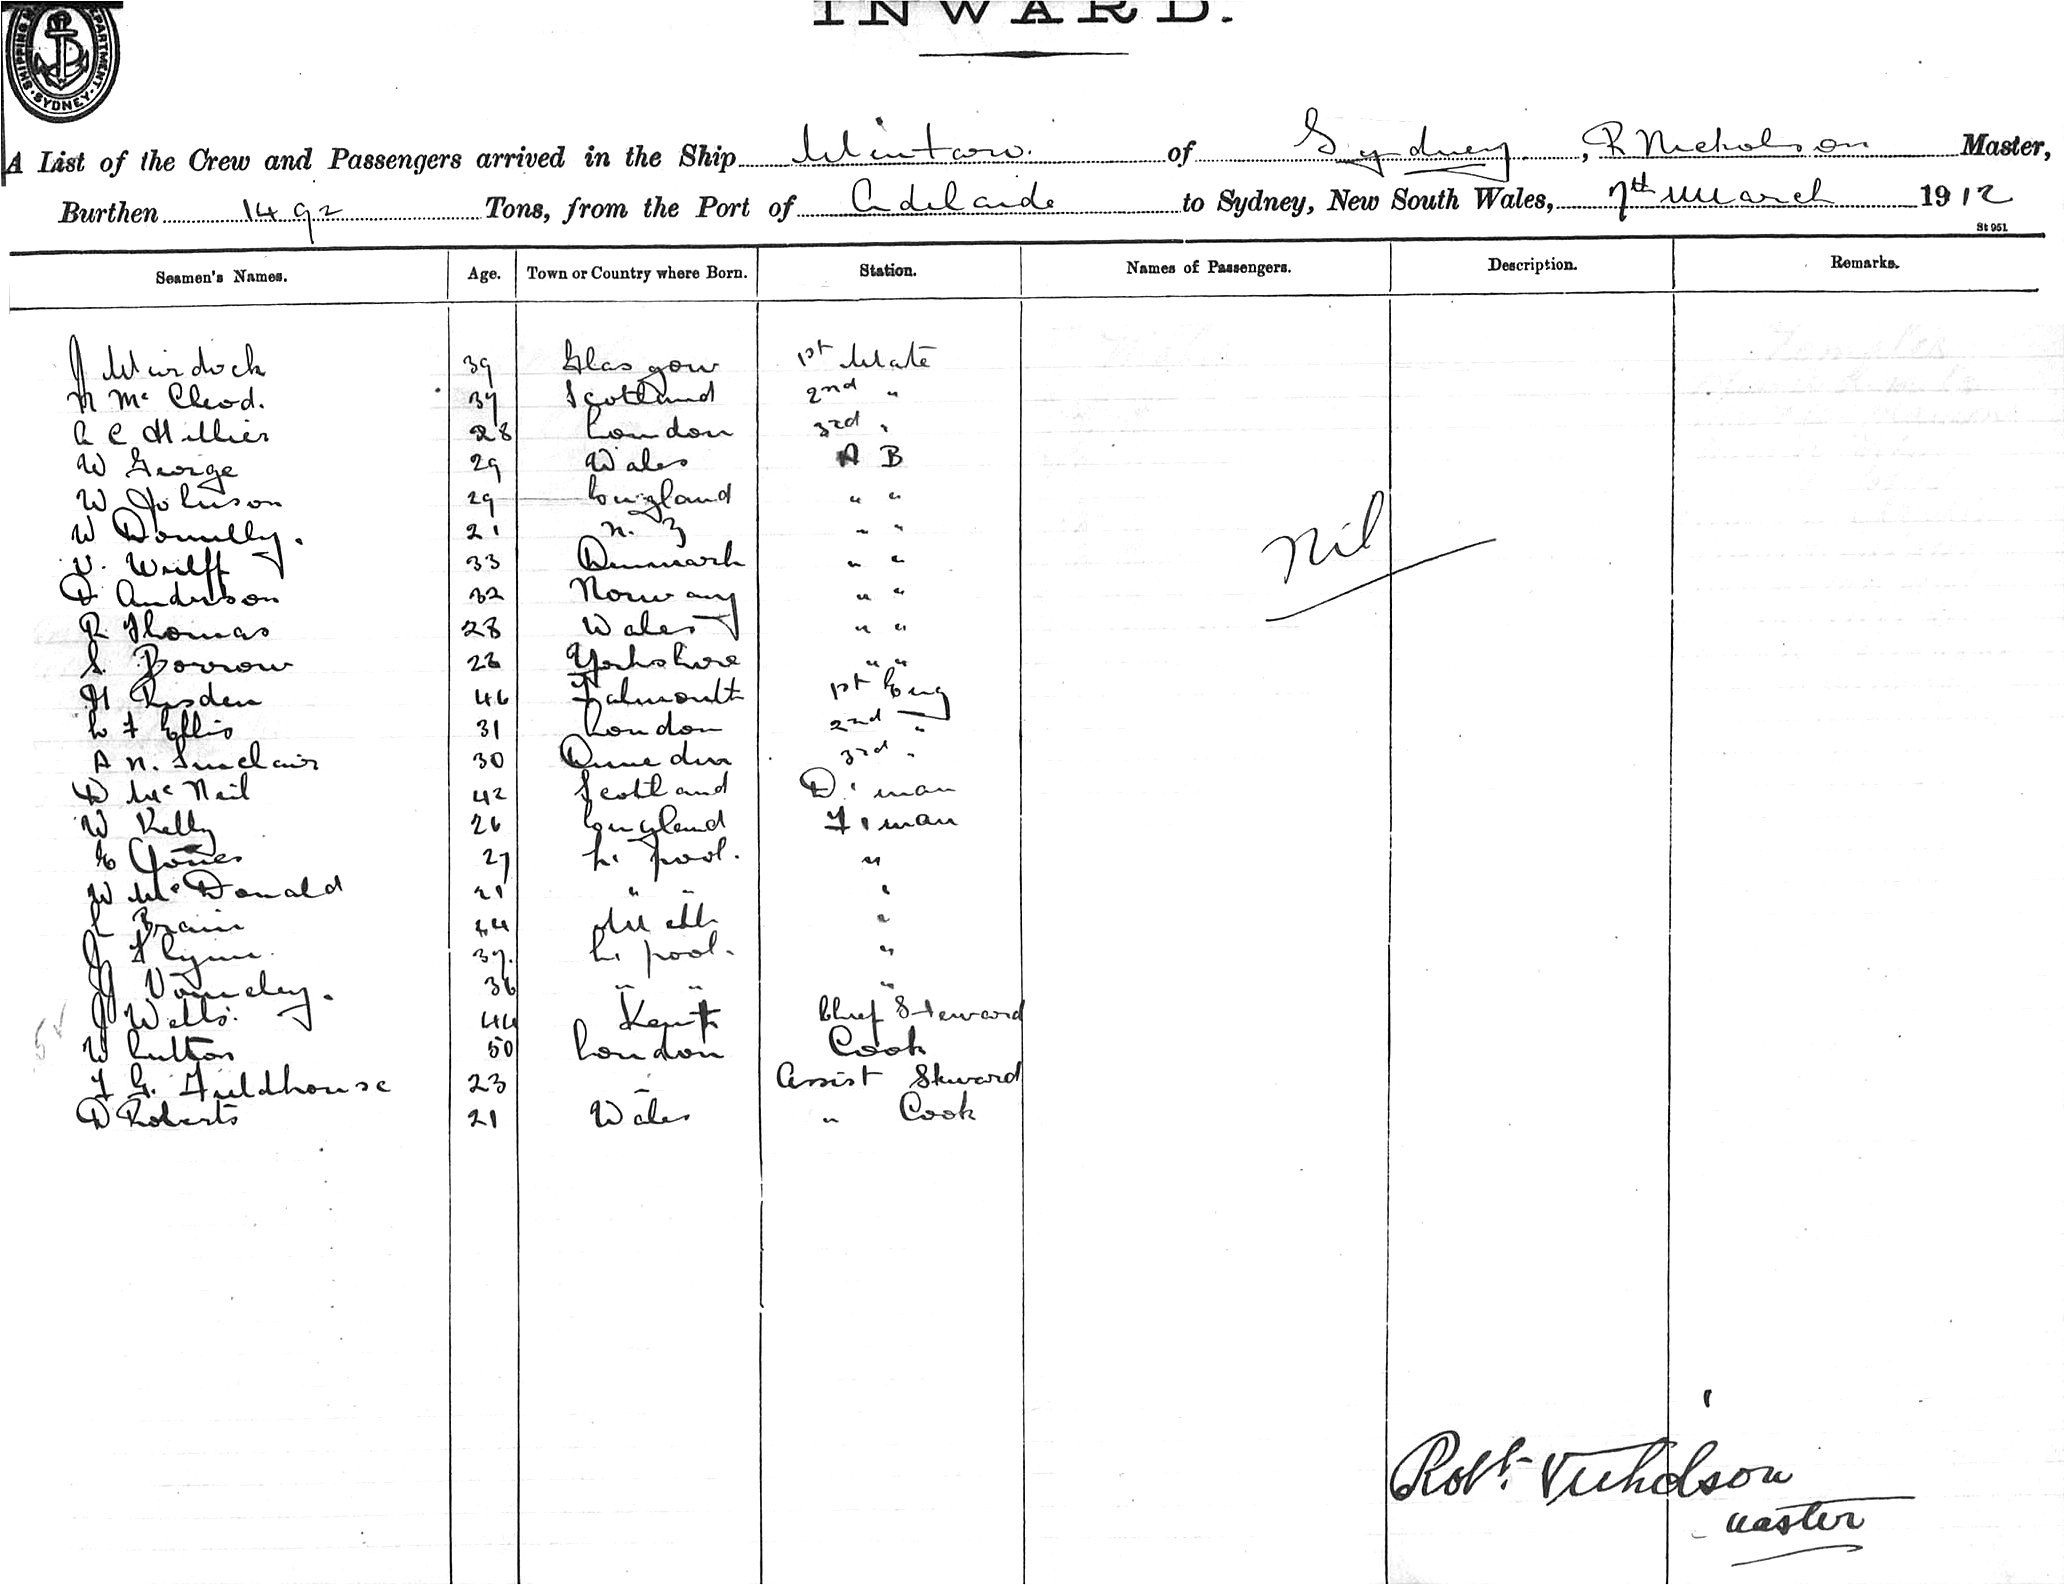 INWARD.
SHIPPING DEPARTMENT. SYDNEY.
A List of the Crew and Passengers arrived in the Ship Mintaro. of Sydney, R Nicholson Master,
Burthen 1492 Tons, from the Port of Adelaide to Sydney, New South Wales, 7th March 1912
St 951
Seamen's Names. Age. Town or Country where Born. Station. Names of Passengers. Description. Remarks.
J Murdock 39 Glasgow 1st Mate
N Mc Cleod. 37 Scotland 2nd "
A C Hillier 28 London 3rd "
W George 29 Wales A B
W Johnson 29 England " "
W Donnelly. 21 N. Z " "
V. Wulff 33 Denmark " "
D Anderson 32 Norway " "
R Thomas 28 Wales " "
S. Borrow 26 Yorkshire " "
H Risden 46 Falmouth 1st Eng
L F Ellis 31 London 2nd "
A N. Sinclair 30 Dunedin 3rd "
D Mc Neil 42 Scotland D. man
W Kelly 26 England F. man
E Jones 27 L. pool. "
W Mc Donald 21 " " "
L Brain 44 Melb "
J Flynn 37. L. pool. "
J 36 " " "
J Wells. 44 Kent Chief Steward
W Lutton 50 London Cook
F G. Fieldhouse 23 " Assist Steward
D Roberts 21 Wales " Cook
Nil
Robt. Nicholson
Master